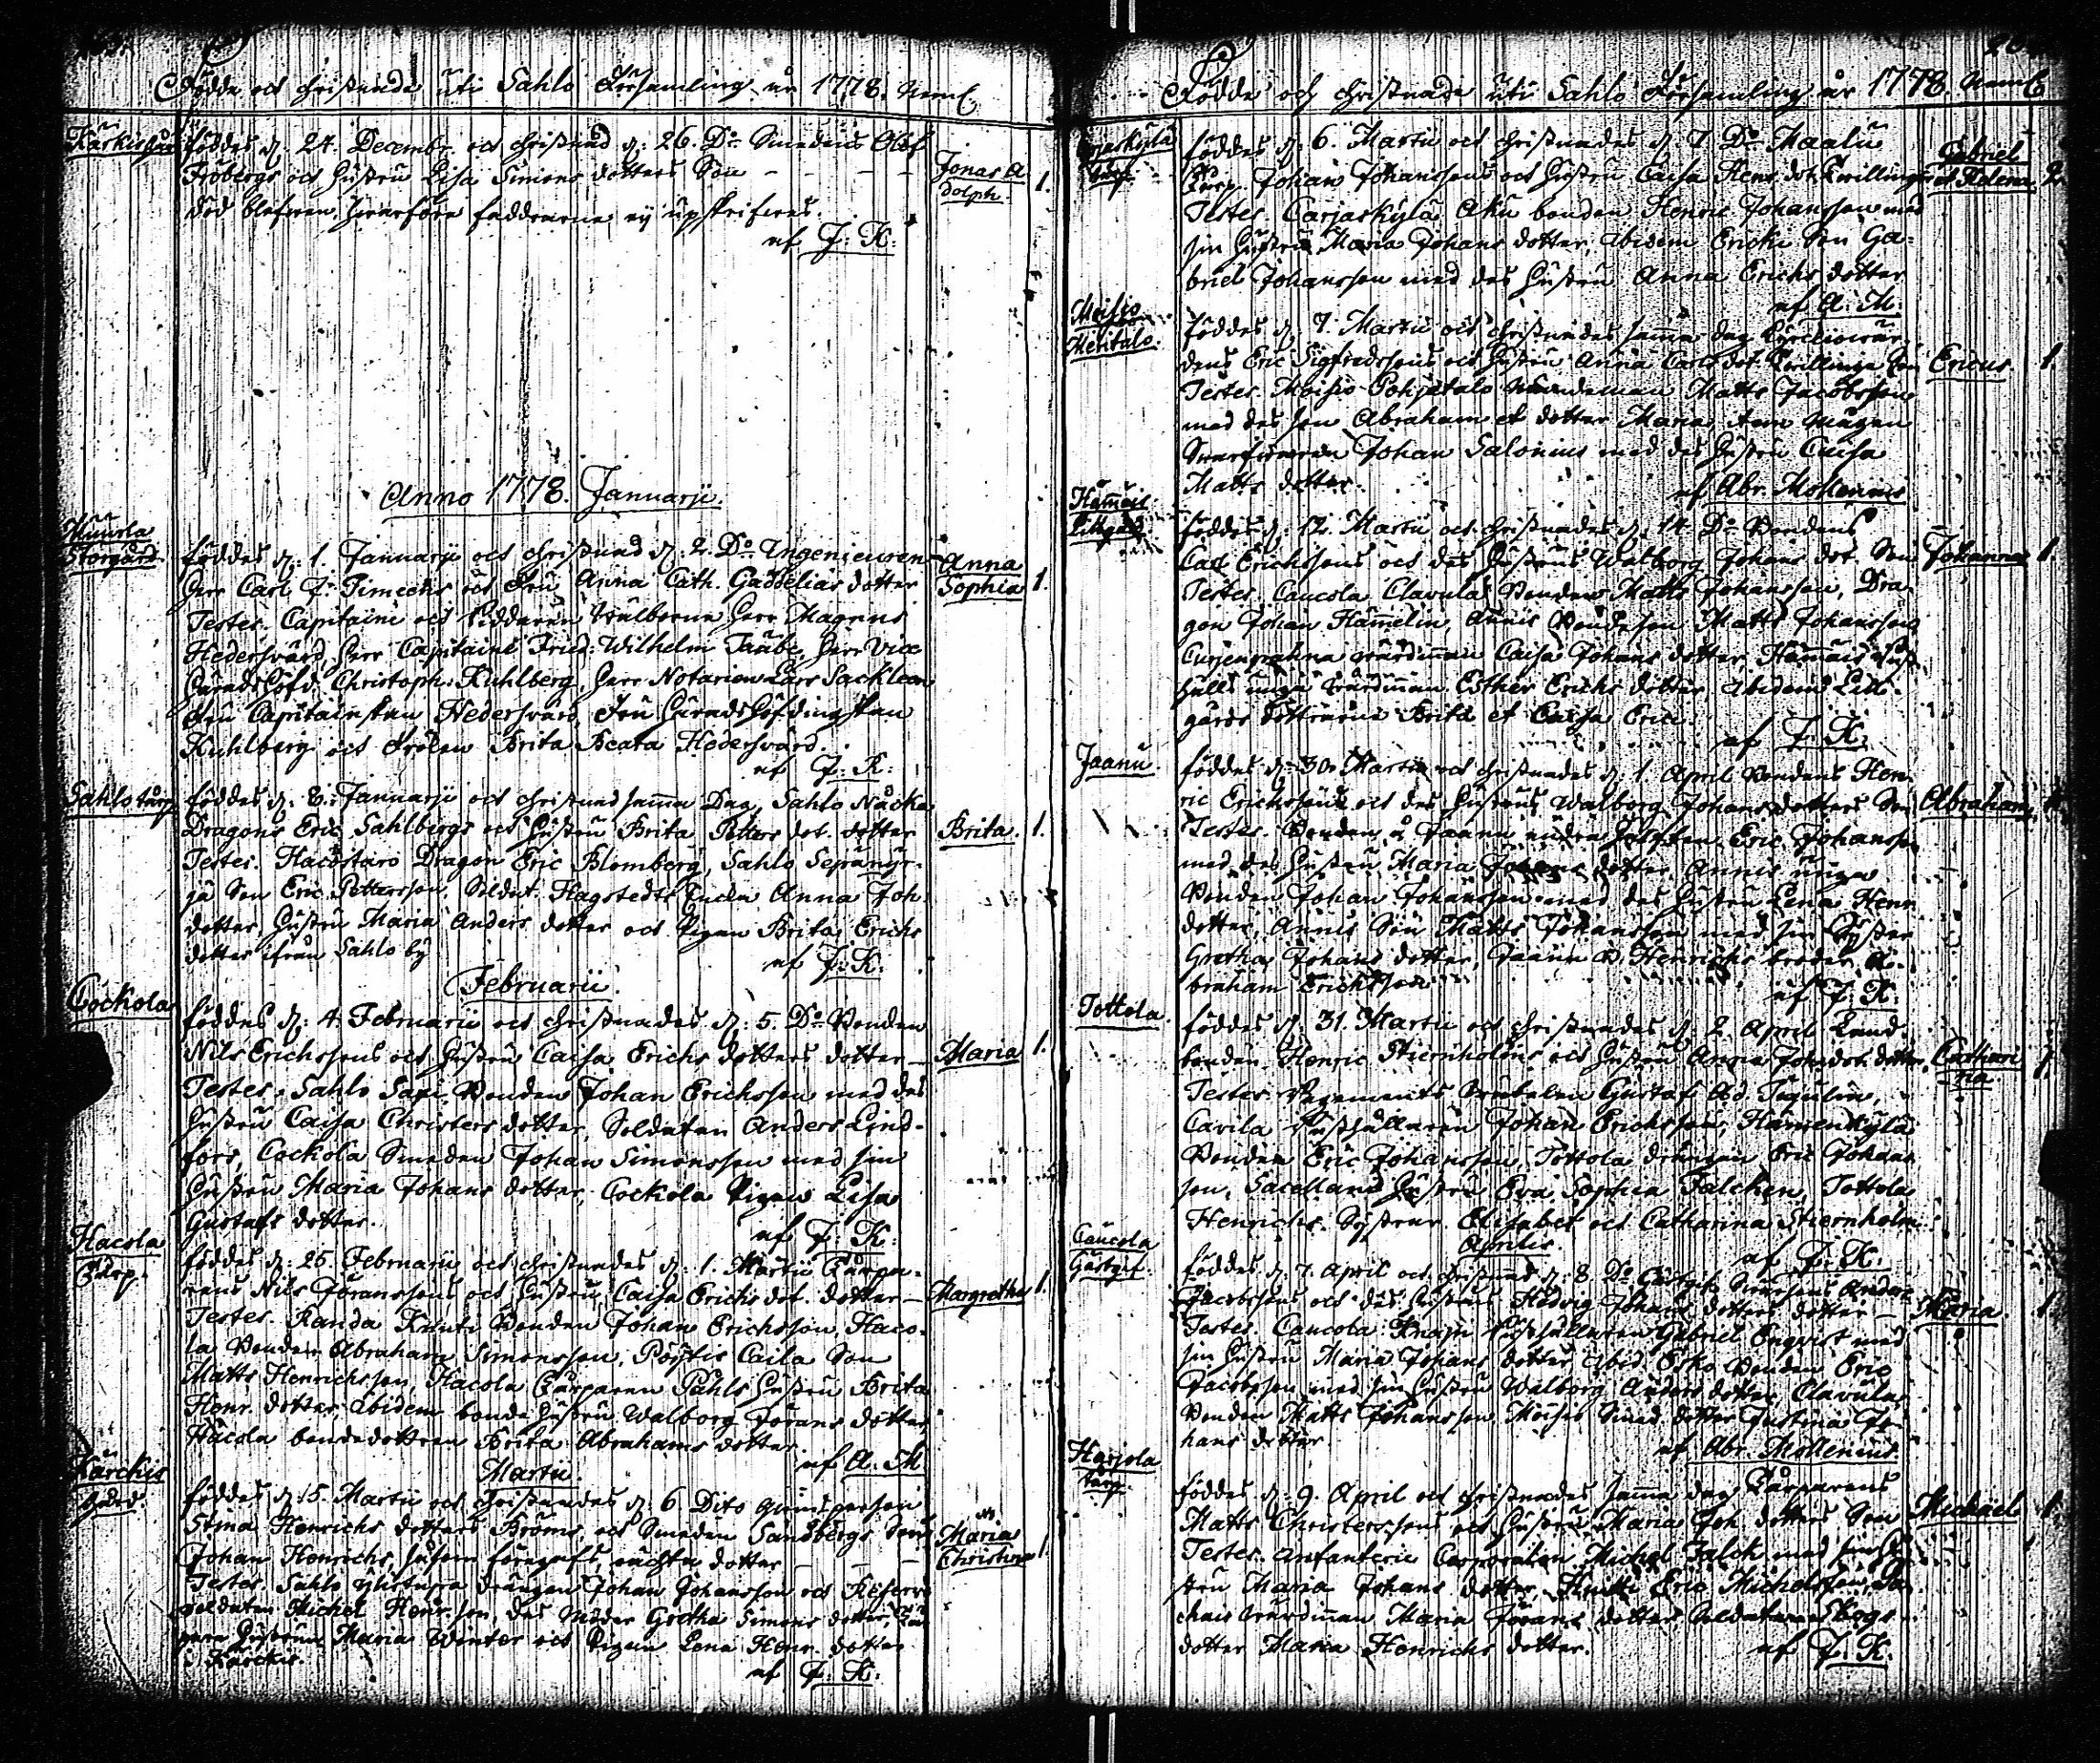 Födde och christnade uti Sahlo Församling år 1778. Neml.
Kärkis
föddes d: 24. Decembr. och christnad d: 26. Do Smedens Olof
Frobergs och hustru Lisa Simons dotters Son
Jonas A
dolph. 1.
död blefwen hwarföre faddrarne ej upskrifwes.
af J: K:
Anno 1778. Januarji.
Muurla
Storgård
föddes d: 1. Januarji och christnad d: 2. Do Ingenieuren
Herr Carl F: Timechs och Fru Anna Cath. Gaddelias dotter
Anna
Sophia 1.
Testes. Capitaine och Riddaren Wälborne Herr Magnus
Hedersvärd, Herr Capitaine Fried: Wilhelm Taube, Herr Vice
Häradshöfd: Christoph. Kuhlberg, Herr Notarien Lars Sackleen
Fru Capitainskan Hedersvärd, Fru Häradshöfdingskan
Kuhlberg och Fröken Brita Beata Hedersvärd.
af J: K:
Sahlo torp
föddes d: 8. Januarji och christnad samma Dag, Sahlo Näcka
Dragons Eric Sahlbergs och hustru Brita Petters dot. dotter
Brita. 1.
Testes. Dragon Eric Blomberg, Sahlo
ja Son Eric Pettersson, Soldat Hagstedts Enka Anna Joh.
dotter, hustru Maria Anders dotter och Pigan Brita Erichs
dotter ifrån Sahlo by
af J: K:
Februarii.
Cockola
föddes d: 4. Februarii och christnades d: 5. Do Bonden
Nils Erichssons och hustru Caisa Erichs dotters dotter
Maria 1.
Testes. Sahlo Sapi Bonden Johan Erichsson med des
hustru Caisa Christers dotter, Soldaten Anders Lind-
fors, Cockola Smeden Johan Simonsson med sin
hustru Maria Johans dotter, Cockola Pigan Lisa
Gustafs dotter.
af J: K:
Hacola
Torp.
föddes d: 25. Februarii och christnades d: 1. Martii Torpa-
rens Nils Göranssons och hustru Caisa Erichs dot. dotter
Margretha 1.
Testes. Randa Knuti Bonden Johan Erichsson, Haco-
la Bonden Abraham Simonsson, Pöytis Caila Son
Matts Henrichsson, Hacola Torparen Påhls hustru Brita
Henr. dotter, Ibidem bonde hustru Walborg Görans dotter,
Hacola bondedottren Brita Abrahams dotter.
af A. M.
Martii.
Kärckis
föddes d: 5. Martii och christnades d: 6 Dito qwinspersson
Stina Henrichs dotters Broms och Smeden Sandbergs Son
Johan Henrichs
dotter
Maria
Christina 1
Testes. Sahlo drängen Johan Johansson och Reserve
soldaten Michel Henr.son, des Moder Gretha Simons dotter,
hustrun Maria Winter och Pigan Lena Henr. dotter
i Kärckis.
af J: K:
Födde och christnade uti Sahlo Församling år 1778. Neml.
torp
föddes d: 6. Martii och christnades d: 7 Do
Torp. Johan Johanssons och hustru Caisa Henr. dot. Twillingar
Gabriel
et Helena. 2.
Testes. Carjaskylä Aku bonden Henric Johansson med
sin hustru Maria Johans dotter, ibidem Ericki Son Ga-
briel Johansson med des hustru Anna Erichs dotter
af A. M.
Moisio
Mentalo.
föddes d: 7. Martii och christnades samma dag
dens Eric Sigfredssons och hustru Anna Carls dot. Twillinge Son
Ericus. 1
Testes. Moisio Pohjatalo Nämdeman Matts Jacobsson
med des son Abraham et dotter Maria, item
Johan Salonius med des hustru Caisa
Matts dotter.
af Abr. Mollenius
föddes d: 12. Martii och christnades d: 14. Do Bondens
Carl Erichssons och des hustrus Walborg Johans dot. Son
Johannes 1.
Testes. Caucola Clavula Bonden Matts Johansson, Dra-
gon Johan Hamelin, Annis Bondeson Matts Johansson
wärdinnan Caisa Johans dotter,
unga wärdinnan Esther Erichs dotter, ibidem Lill-
gårds döttrarne Brita et Caisa Erics.
af J: K:
Jaanu
föddes d: 30. Martii och christnades d: 1. April Bondens Hen-
ric Erichssons och des hustrus Walborg Johans dotters Son
Abraham 1.
Testes. Bonden å Jaanu andra Eric Johansson
med des hustru Maria dotter, Annis unga
Bonden Johan Johansson med des hustru Lena Henr.
dotter, Annis Son Matts Johansson med sin Syster
Gretha Johans dotter, Jaanu B. Henrichs broder A-
braham Erichsson.
af J: K:
Tottola.
föddes d: 31. Martii och christnades d: 2 April Land-
bonden Henric Stiernholms och hustru Anna Joh. dot. dotter
Cathari
na 1.
Testes. Regements Gustaf Ad. Tegulin,
Cavila Rusthållaren Johan Erichsson, Hamenkylä
Bonden Eric Johansson, Tottola drängen Eric Johans-
son, hustru Eva Sophia Falcken, Tottola
Henrichs Systrar Elisabet och Catharina Stiernholm
af J: K:
Aprilis.
Caucola
Gästgif.
föddes d: 7. April och christnad d: 8. Do Gästgif. Anders
Jacobssons och des hustrus Hedvig Johans dotters dotter
Maria. 1
Testes. Caucola Knapi Rusthållaren Gabriel Enqvist med
sin hustru Maria Johans dotter, ibid. Esko Bonden Eric
Jacobsson med sin hustru Walborg Anders dotter, Clavula
Bonden Matts Johansson, Moisio Smed dotter Justina Jo-
hans dotter.
af Abr. Mollenius.
Harjola
torp.
föddes d: 9. April och christnades samma dag Torparens
Matts Christerssons och hustru Maria Joh. dotters Son
Michael 1.
Testes. Infanterie Corporalen Michel Falck med sin hu-
stru Maria Johans dotter, Eric Michelsson,
wärdinnan Maria Görans dotter,
dotter Maria Henrichs dotter.
af J: K: